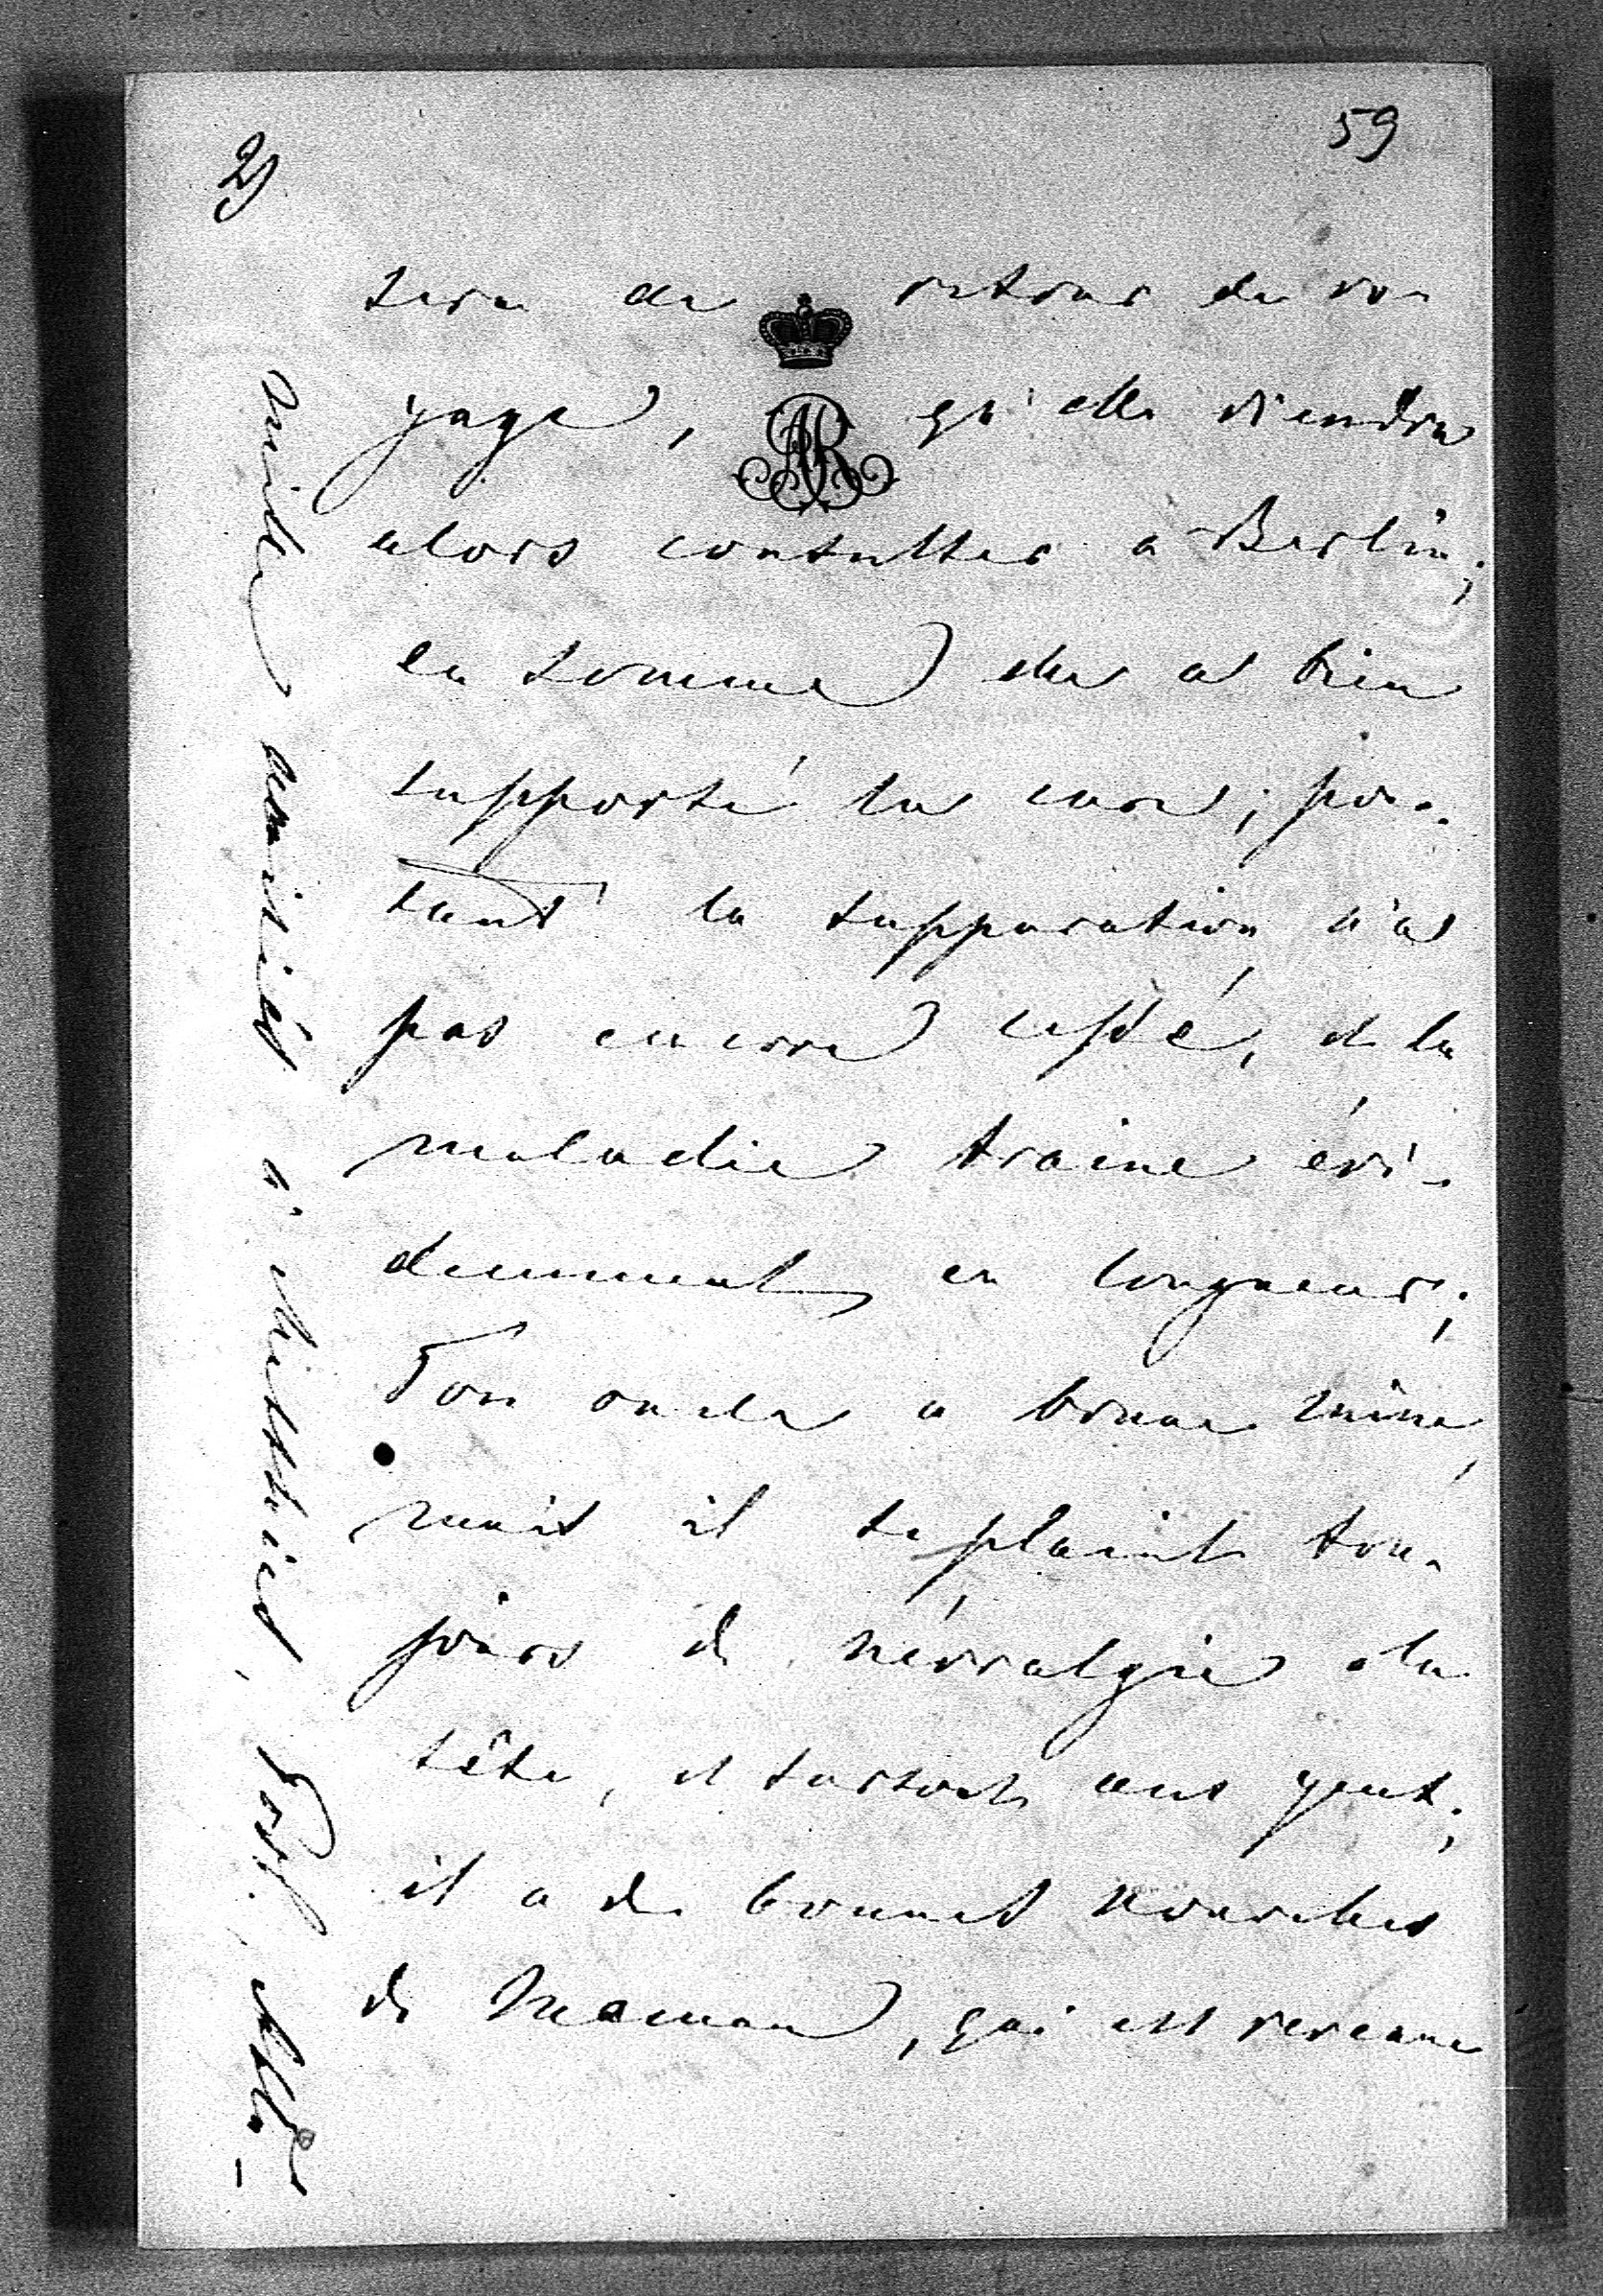 59
2)
sera de retour du vo-
yage, qu'elle viendra
alors consulter a Berlin;
en somme elle a bien
supporté la cure; pour-
tant la suppuration n'a
pas encore cessé, et la
maladie traine évi-
demment en longueur;
Ton oncle a bonne mine,
mais il se plaint tou-
jours de névralgie a la
tête, et surtout aux yeux;
il a de bonnes nouvelles
de Maman, qui est revenue
mille amitiés à